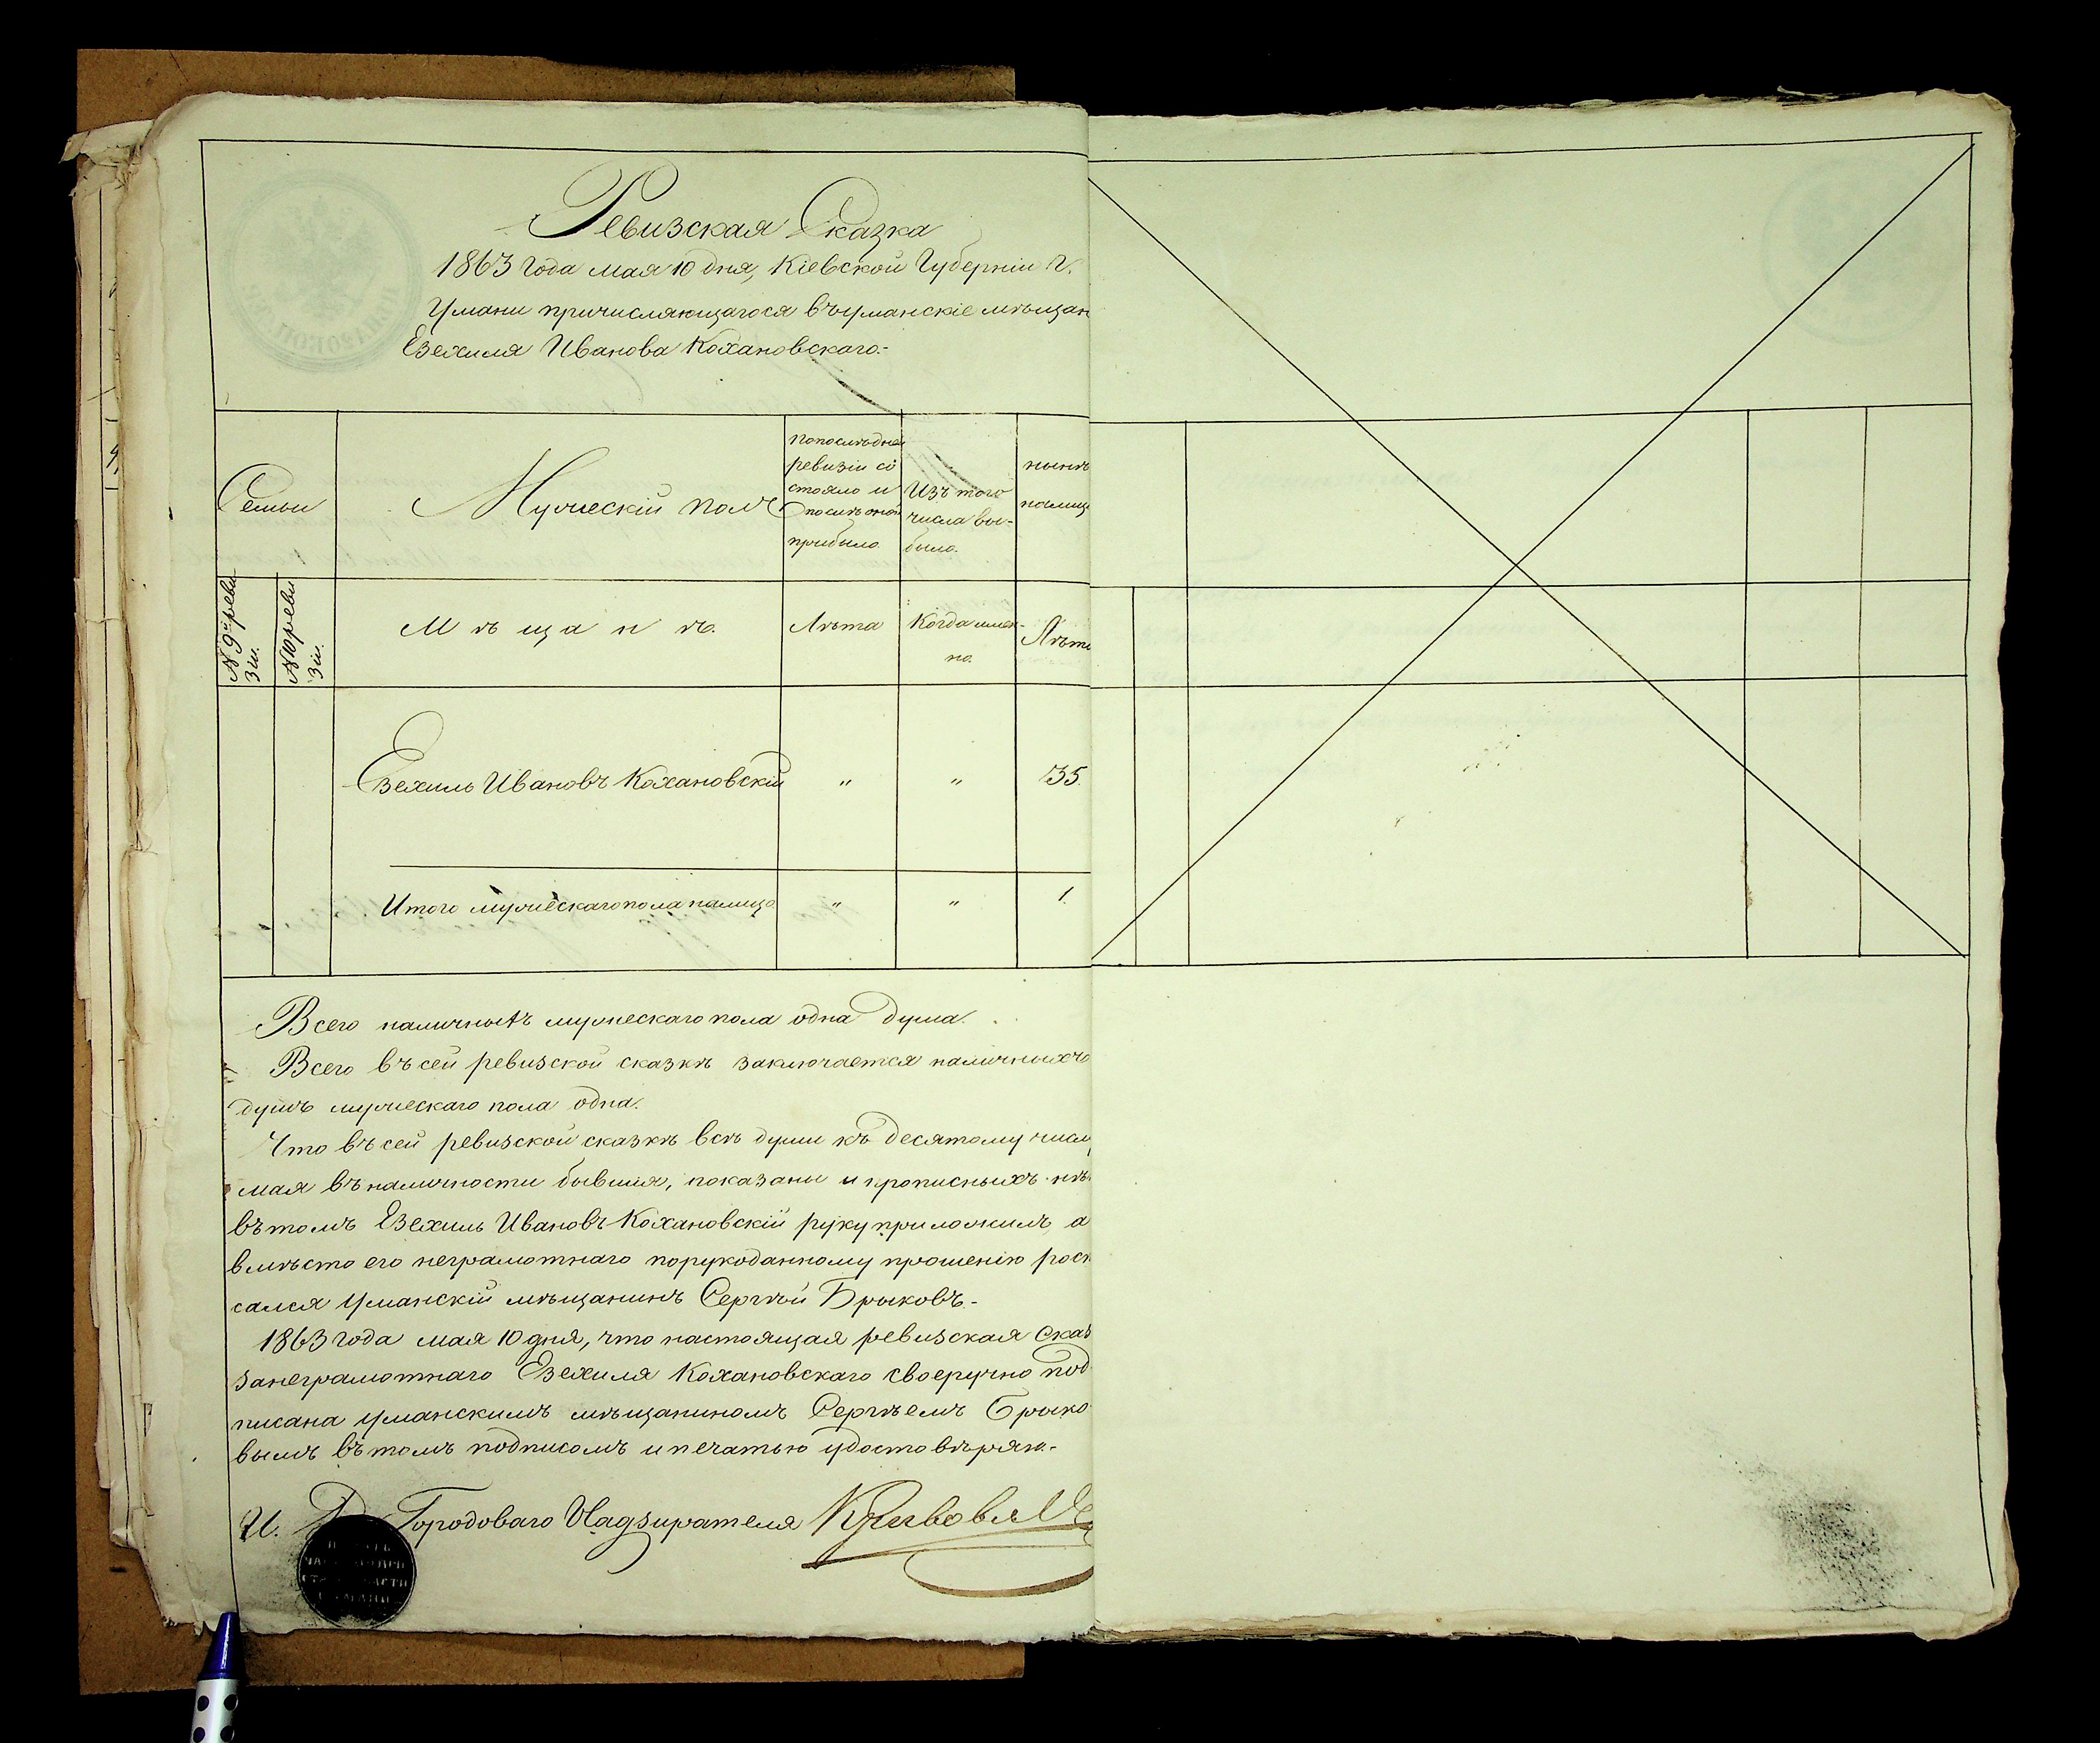 Ревизская Сказка
1863 года мая 10 дня, Кіевской Губерніи г.
Умани причисляющагося въ уманскіе мѣщан
Езехиля Иванова Кохановскаго.-
Семьи
Мужескій полъ
По послѣдней
ревизіи со
стояло и
послѣ оной
прибыло.
Изъ того
числа вы-
было.
нынѣ
на лицо
№ 9й реви
зіи.
№ 10 реви
зіи.
Мѣщанъ.
Лѣта
Когда имен-
но.
Лѣта
Езехиль Ивановъ Кохановскій " " 35.
Итого мужескаго пола на лицо " " 1.
Всего наличныхъ мужескаго пола одна душа.
Всего въ сей ревизской сказкѣ заключается наличныхъ
душъ мужескаго пола одна.
Что въ сей ревизской сказкѣ всѣ души къ десятому числу
мая въ наличности бывшія, показаны и прописныхъ нѣ
въ томъ Езехиль Ивановъ Кохановскій руку приложилъ, а
вмѣсто его неграмотнаго по рукоданному прошенію росп
сался Уманскій мѣщанинъ Сергѣй Брыковъ.-
1863 года мая 10 дня, что настоящая ревизская сказ
за неграмотнаго Езехиля Кохановскаго своеручно под
писана уманскимъ мѣщаниномъ Сергѣемъ Брыко
вымъ въ томъ подписомъ и печатью удостовѣряю.-
И. Д. Городоваго Надзирателя